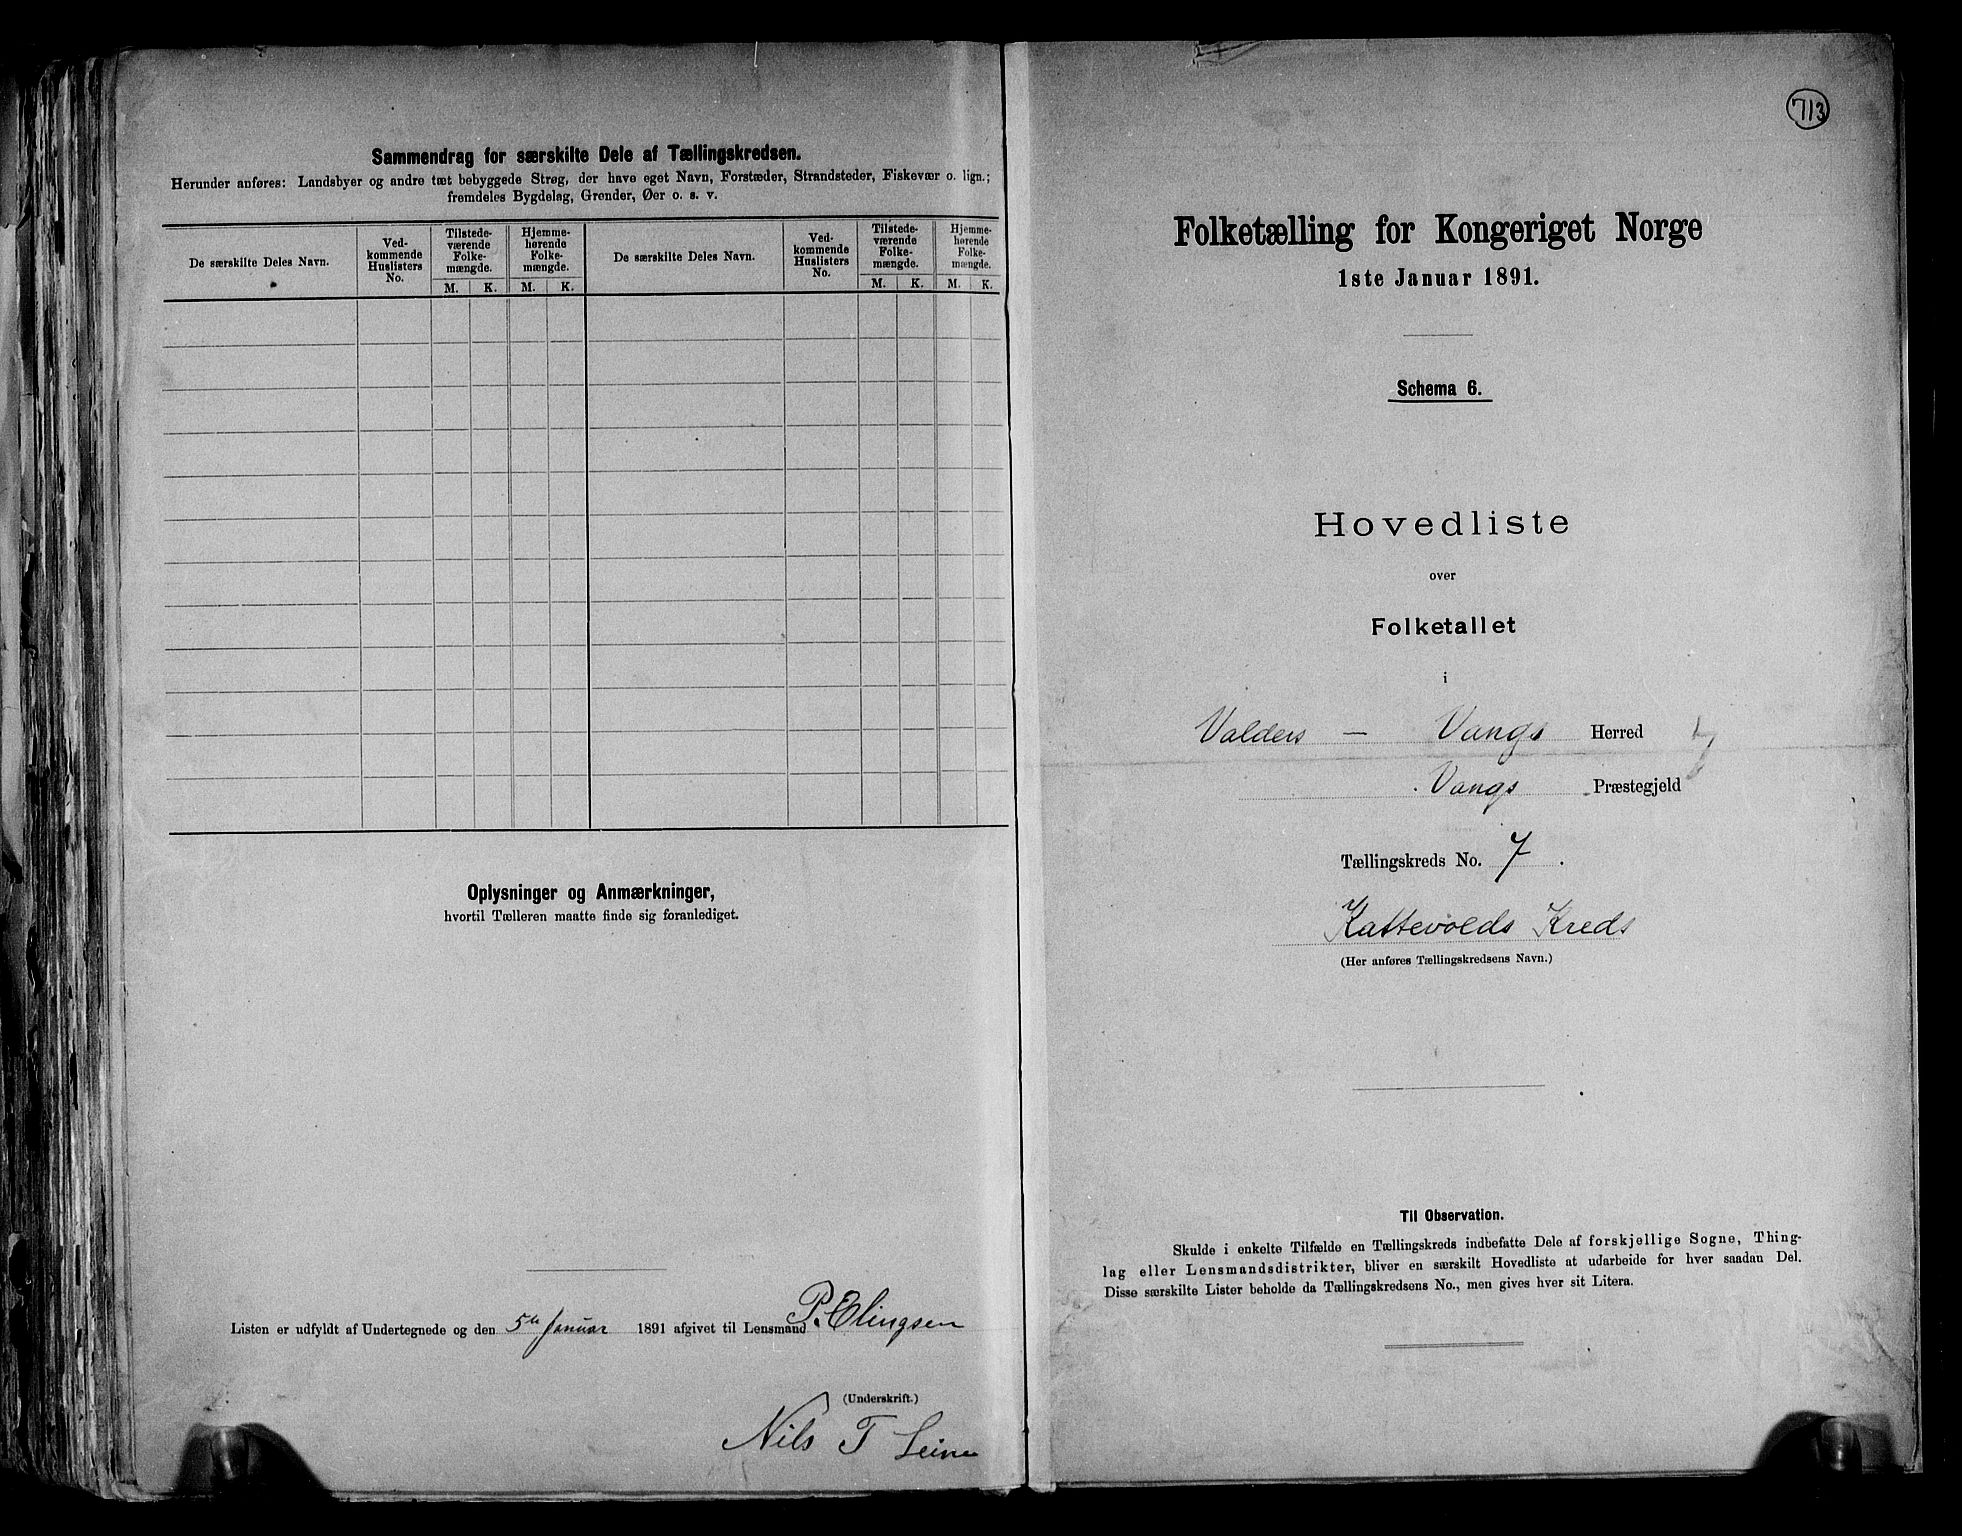 Sammendrag for særskilte Dele af Tællingskredsen.
Herunder anføres: Landsbyer og andre tæt bebyggede Strøg, der have eget Navn, Forstæder, Strandsteder, Fiskevær o. lign.;
fremdeles Bygdelag, Grender, Øer o. s. v.
De særskilte Deles Navn.
Ved-
kommende
Huslisters
No.
Tilstede-
værende
Folke-
mængde.
Hjemme-
hørende
Folke-
mængde.
De særskilte Deles Navn.
Ved-
kommende
Huslisters
No.
Tilstede-
værende
Folke-
mængde.
Hjemme-
hørende
Folke-
mængde.
M. K. M. K. M. K. M. K.
Oplysninger og Anmærkninger,
hvortil Tælleren maatte finde sig foranlediget.
Listen er udfyldt af Undertegnede og den 5te Januar 1891 afgivet til Lensmand P. Elingsen
(Underskrift.)
Nils T Leine
713
Folketælling for Kongeriget Norge
1ste Januar 1891.
Schema 6.
Hovedliste
over
Folketallet
i
Valders — Vangs Herred
Vangs Præstegjeld
7
Tællingskreds No. 7.
Kattevolds Kreds
(Her anføres Tællingskredsens Navn.)
Til Observation.
Skulde i enkelte Tilfælde en Tællingskreds indbefatte Dele af forskjellige Sogne, Thing-
lag eller Lensmandsdistrikter, bliver en særskilt Hovedliste at udarbeide for hver saadan Del.
Disse særskilte Lister beholde da Tællingskredsens No., men gives hver sit Litera.